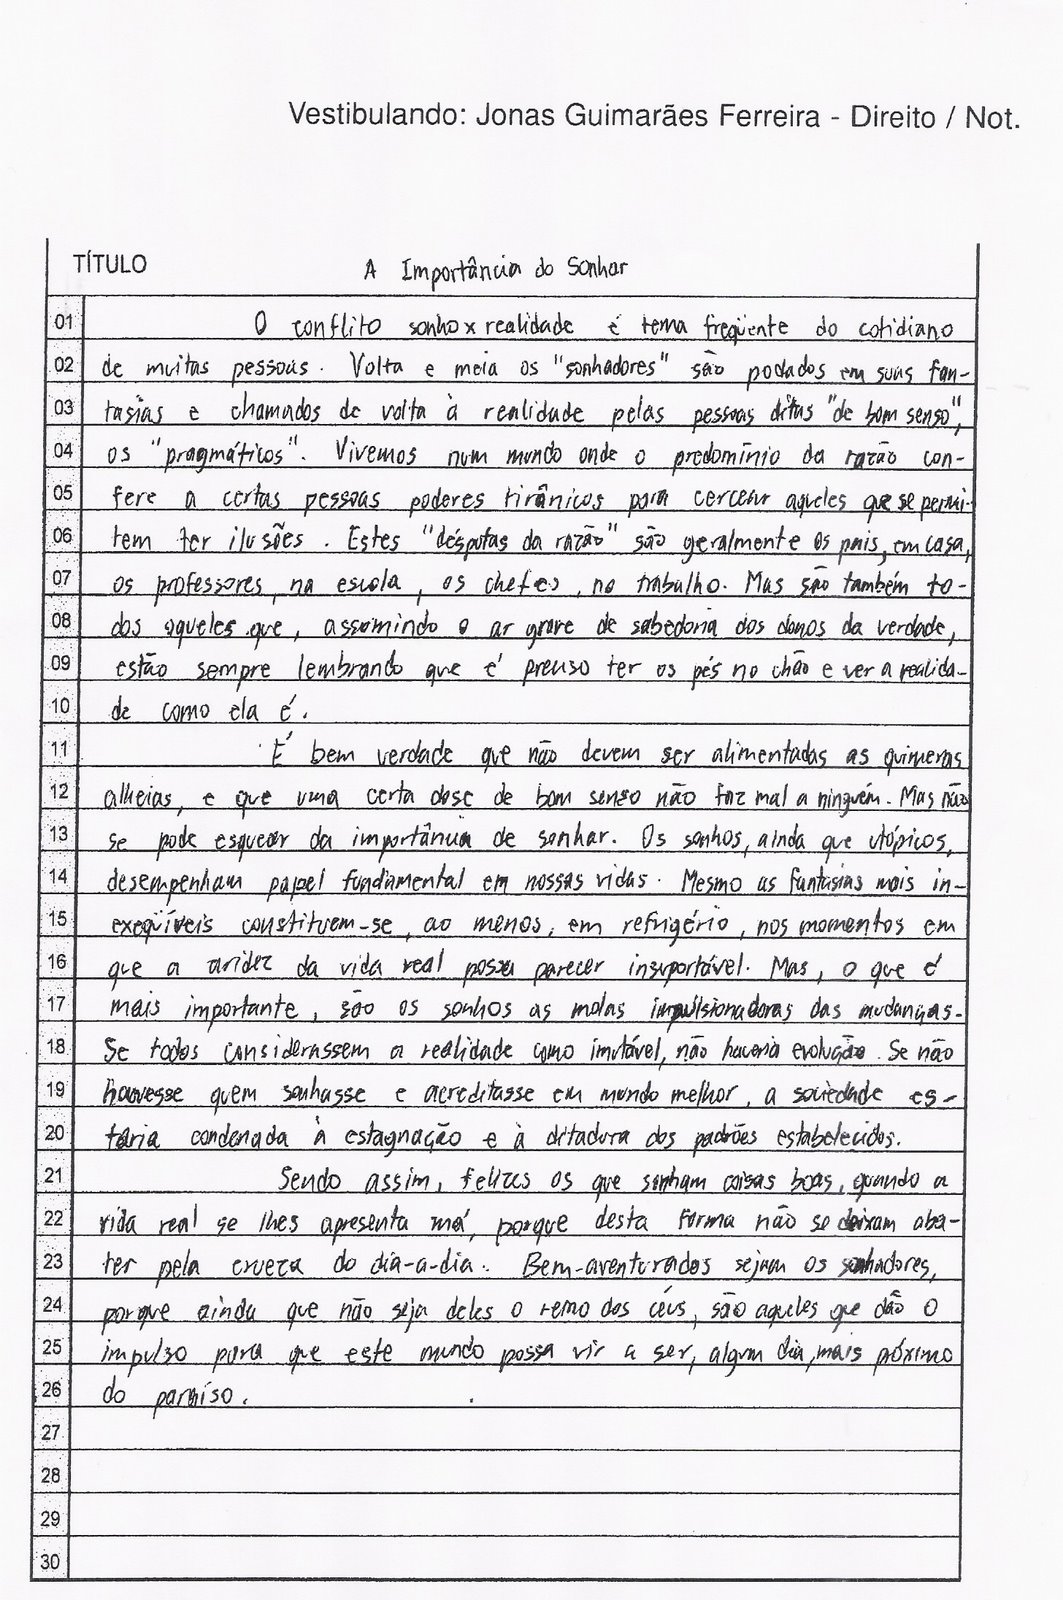 Vestibulando: Jonas Guimarães Ferreira - Direito / Not.
TÍTULO A Importância do Sonhar
01 O conflito sonho x realidade é tema freqüente do cotidiano
02 de muitas pessoas. Volta e meia os "sonhadores" são podados em suas fan-
03 tasias e chamados de volta à realidade pelas pessoas ditas "de bom senso",
04 os "pragmáticos". Vivemos num mundo onde o predomínio da razão con-
05 fere a certas pessoas poderes tirânicos para cercear aqueles que se permi-
06 tem ter ilusões. Estes "déspotas da razão" são geralmente os pais, em casa,
07 os professores, na escola, os chefes, no trabalho. Mas são também to-
08 dos aqueles que, assumindo o ar grave de sabedoria dos donos da verdade,
09 estão sempre lembrando que é preciso ter os pés no chão e ver a realida-
10 de como ela é.
11 É bem verdade que não devem ser alimentadas as quimeras
12 alheias, e que uma certa dose de bom senso não faz mal a ninguém. Mas não
13 se pode esquecer da importância de sonhar. Os sonhos, ainda que utópicos,
14 desempenham papel fundamental em nossas vidas. Mesmo as fantasias mais in-
15 exeqüíveis constituem-se, ao menos, em refrigério, nos momentos em
16 que a aridez da vida real possa parecer insuportável. Mas, o que é
17 mais importante, são os sonhos as molas impulsionadoras das mudanças.
18 Se todos considerassem a realidade como imutável, não haveria evolução. Se não
19 houvesse quem sonhasse e acreditasse em mundo melhor, a sociedade es-
20 taria condenada à estagnação e à ditadura dos padrões estabelecidos.
21 Sendo assim, felizes os que sonham coisas boas, quando a
22 vida real se lhes apresenta má, porque desta forma não se deixam aba-
23 ter pela crueza do dia-a-dia. Bem-aventurados sejam os sonhadores,
24 porque ainda que não seja deles o reino dos céus, são aqueles que dão o
25 impulso para que este mundo possa vir a ser, algum dia, mais próximo
26 do paraíso.
27
28
29
30